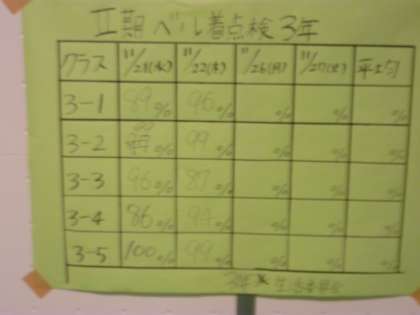 Ⅱ期 ベル着点検 3年
クラス 11/21(水) 11/22(木) 11/26(月) 11/27(火) 平均
3-1 89% 96% % % %
3-2 99% % % %
3-3 96% 87% % % %
3-4 86% % % % %
3-5 100% 99% % % %
3年